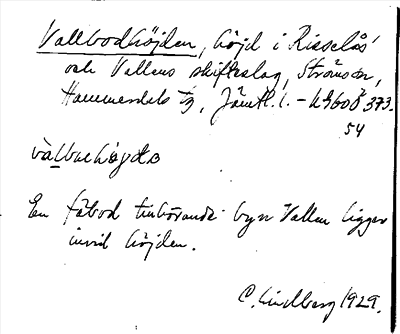 Vallbodhöjden, höjd i Risselås'
och Vallens skifteslag, Ströms sn,
Hammerdals tg, Jämtl. l. - 
54
En fäbod tillhörande byn Vallen ligger
invid höjden.
C. Lindberg 1929.